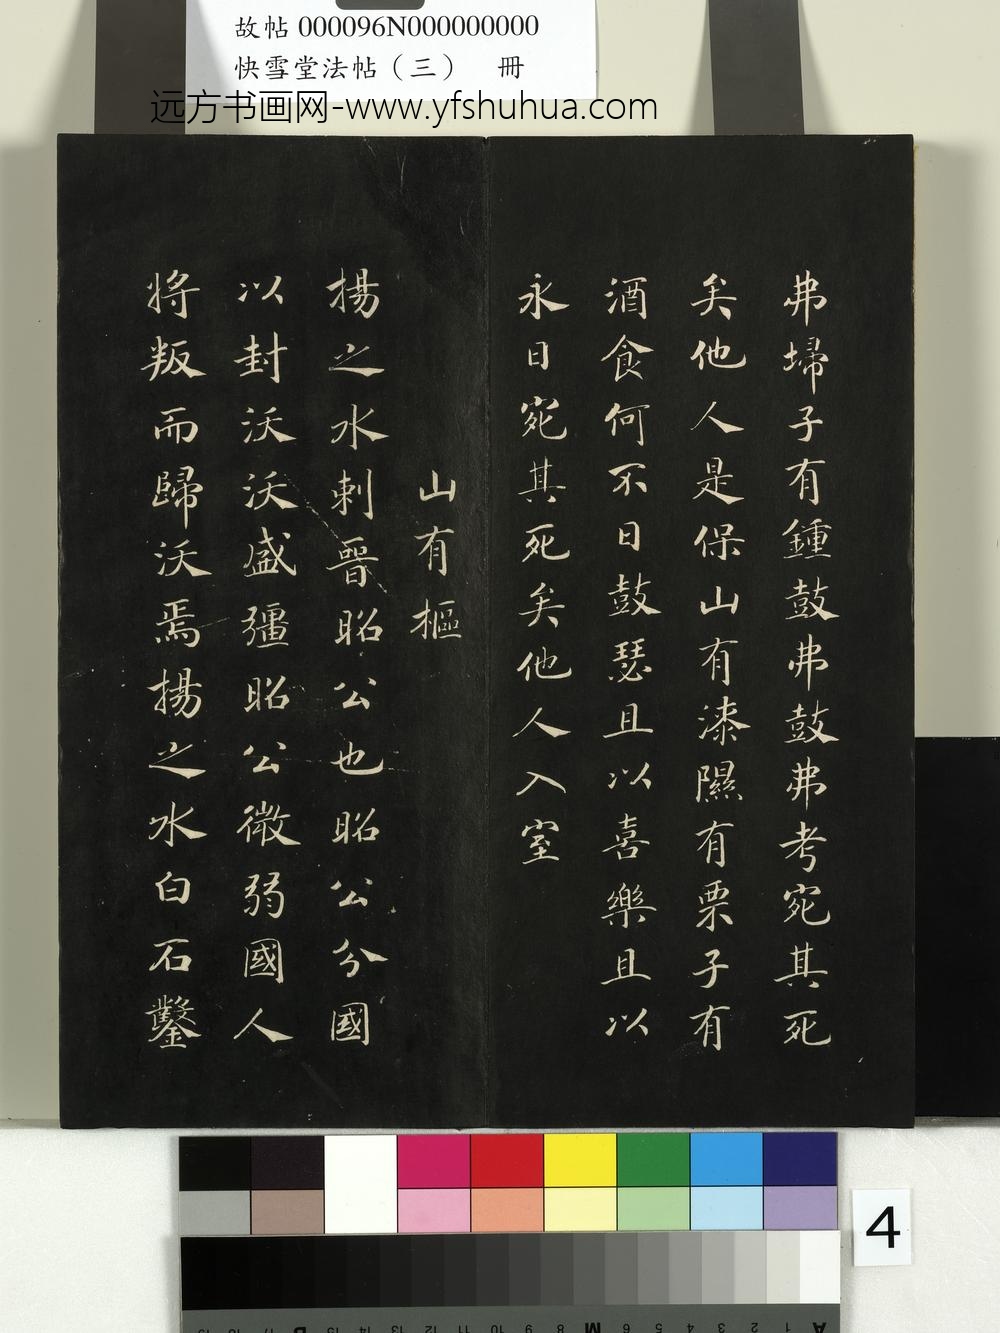 故帖 000096N000000000
快雪堂法帖（三） 冊
远方书画网-www.yfshuhua.com
弗埽子有鍾鼓弗鼓弗考宛其死
矣他人是保山有漆隰有栗子有
酒食何不日鼓瑟且以喜樂且以
永日宛其死矣他人入室
山有樞
揚之水刺晉昭公也昭公分國
以封沃沃盛彊昭公微弱國人
將叛而歸沃焉揚之水白石鑿
4
A 1 2 3 4 5 6 M 8 9 10 11 12 13 14 15 B 17 18 19